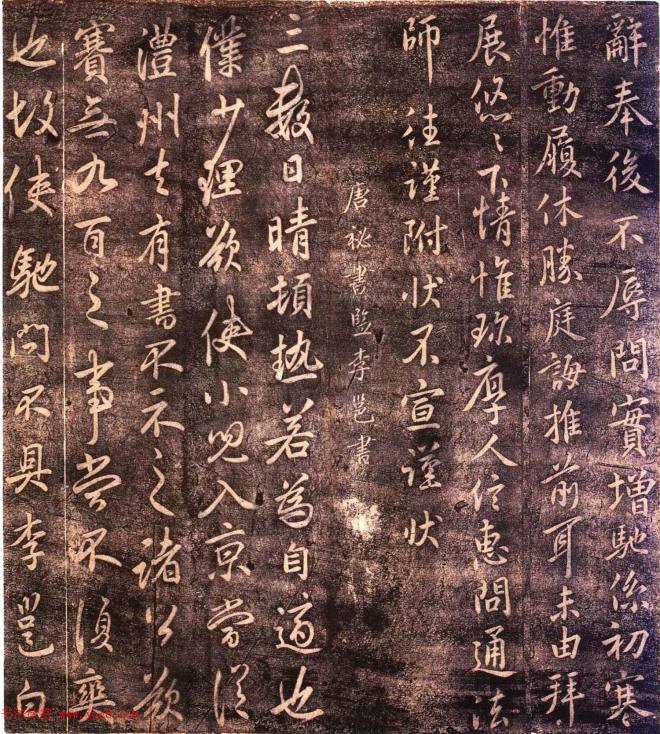 辭奉後不辱問實增馳係初寒
惟動履休勝庭誨推前耳未由拜
展悠〻下情惟珎厚人信惠問通法
師往謹附状不宣謹状
唐秘書監李邕書
三數日晴頓熱若為自適也
僕少理欲使小兒入京當從
澧州去有書不示之諸公欲
賽無九百之事當不須奕
也故使馳問不具李邕白